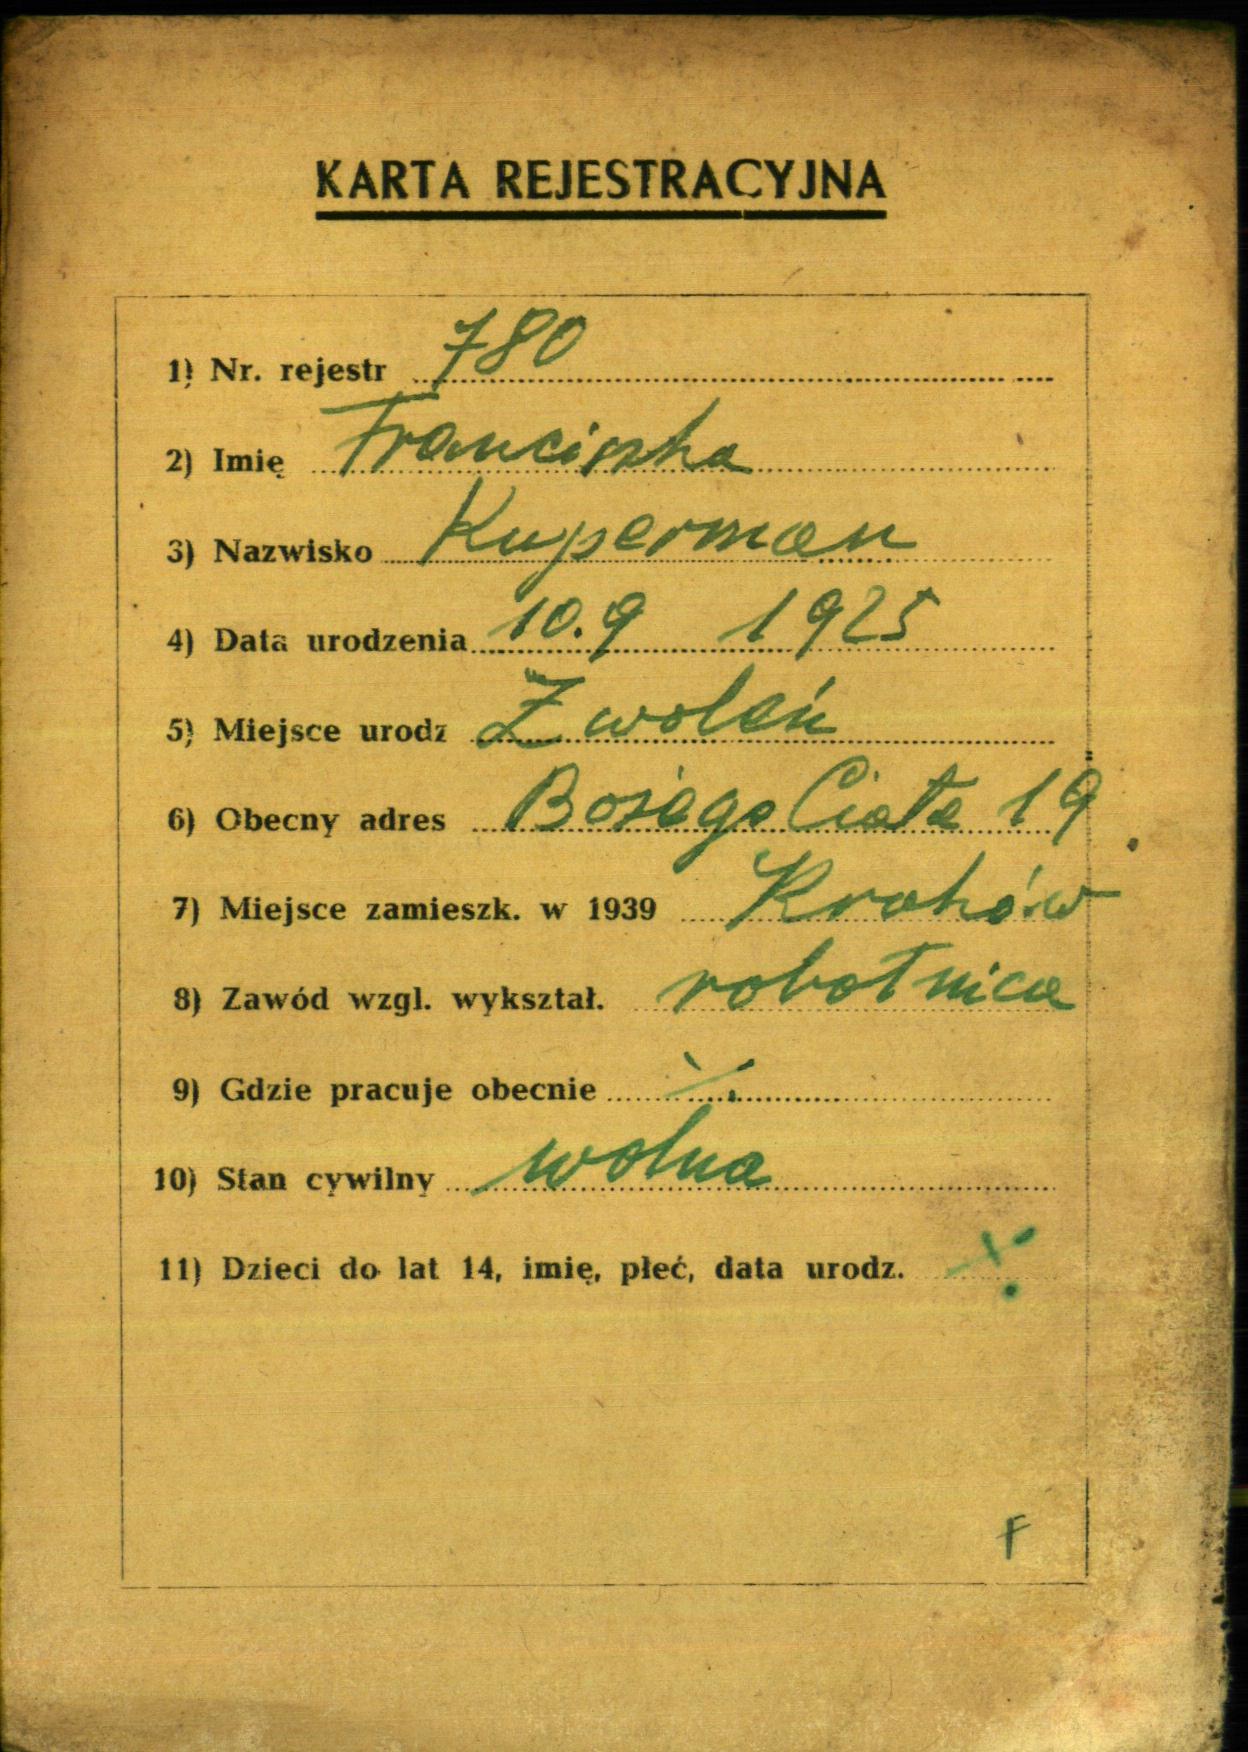 KARTA REJESTRACYJNA
1) Nr. rejestr 780
2) Imię Franciszka
3) Nazwisko Kuperman
4) Data urodzenia 10.9 1925
5) Miejsce urodz Zwoleń
6) Obecny adres Bożego Ciała 19
7) Miejsce zamieszk. w 1939 Kraków
8) Zawód wzgl. wykształ. robotnica
9) Gdzie pracuje obecnie
10) Stan cywilny wolna
11) Dzieci do lat 14, imię, płeć, data urodz.
F